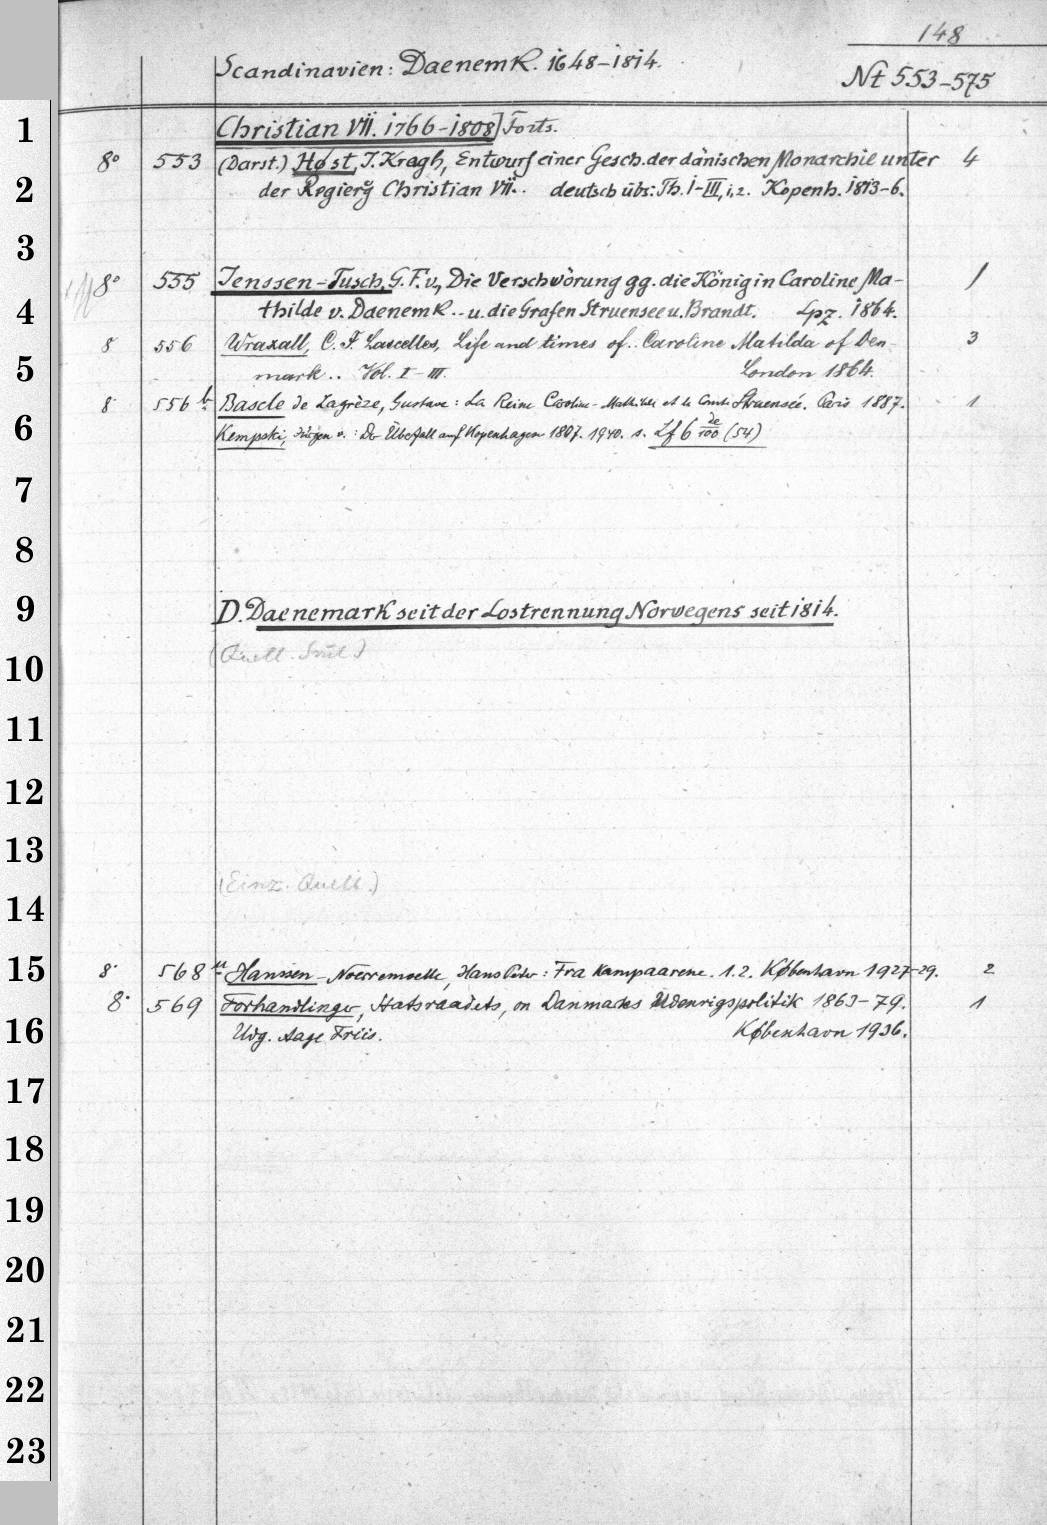 148
Scandinavien: Daenemk. 1648-1814.
Nt 553-575
1
Christian VII. 1766-1808] Forts.
8° 553 (Darst.) Høst, J. Kragh, Entwurf einer Gesch. der dänischen Monarchie unter 4
2
der Regierg Christian VII.. deutsch übs: Th. I-III, 1, 2. Kopenh. 1813-6.
3
8° 555 Jenssen-Tusch, G. F. v., Die Verschwörung gg. die Königin Caroline Ma- 1
4
thilde v. Daenemk.. u. die Grafen Struensee u. Brandt. Lpz. 1864.
8 556 Wraxall, C. F. Lascelles, Life and times of.. Caroline Matilda of Den- 3
5
mark.. Vol. I-III. London 1864.
8 556 b Bascle de Lagrèze, Gustave: La Reine Caroline-Mathilde et le Comte Struensée. Paris 1887. 1
6
Kempski, Jürgen v.: Der Überfall auf Kopenhagen 1807. 1940. s. Lf 6 de/100 (54)
7
8
9
D. Daenemark seit der Lostrennung Norwegens seit 1814.
(Quell. )
10
11
12
13
(Einz. Quell.)
14
15
8° 568 Hanssen-Noerremoelle, Hans Peter: Fra Kampaarene. 1.2. København 1927-29. 2
8° 569 Forhandlinger, Statsraadets, om Danmarks Udenrigspolitik 1863-79. 1
16
Udg. Aage Friis. København 1936.
17
18
19
20
21
22
23